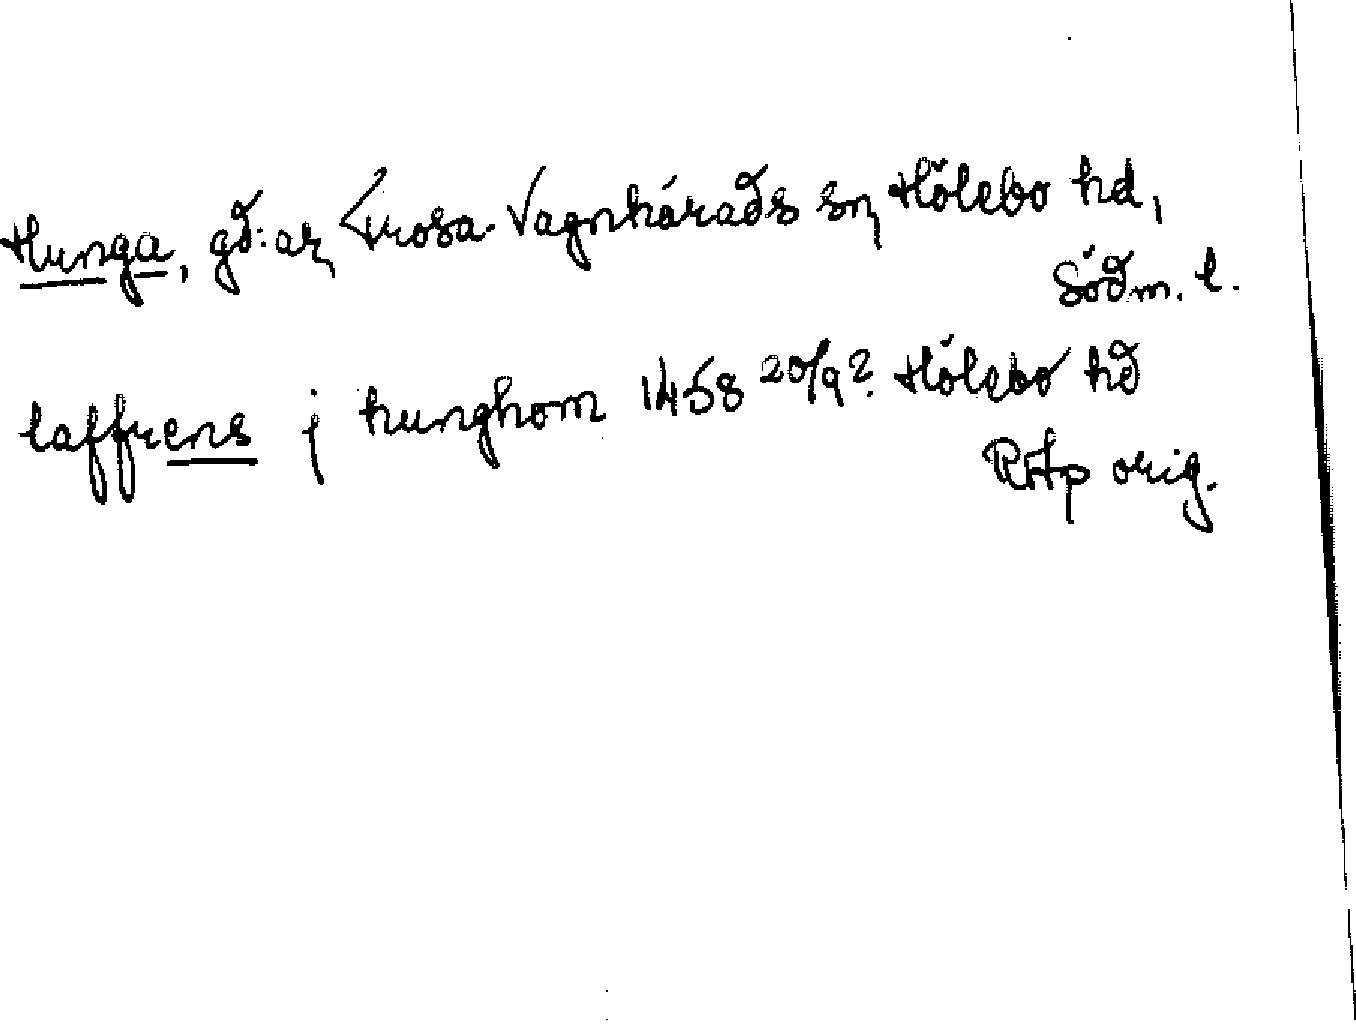 Hunga, gd:ar, Trosa-Vagnhärads sn, Hölebo hd,
Södm. l.
laffrens j hunghom 1458 20/9? Hölebo hd
RAp orig.